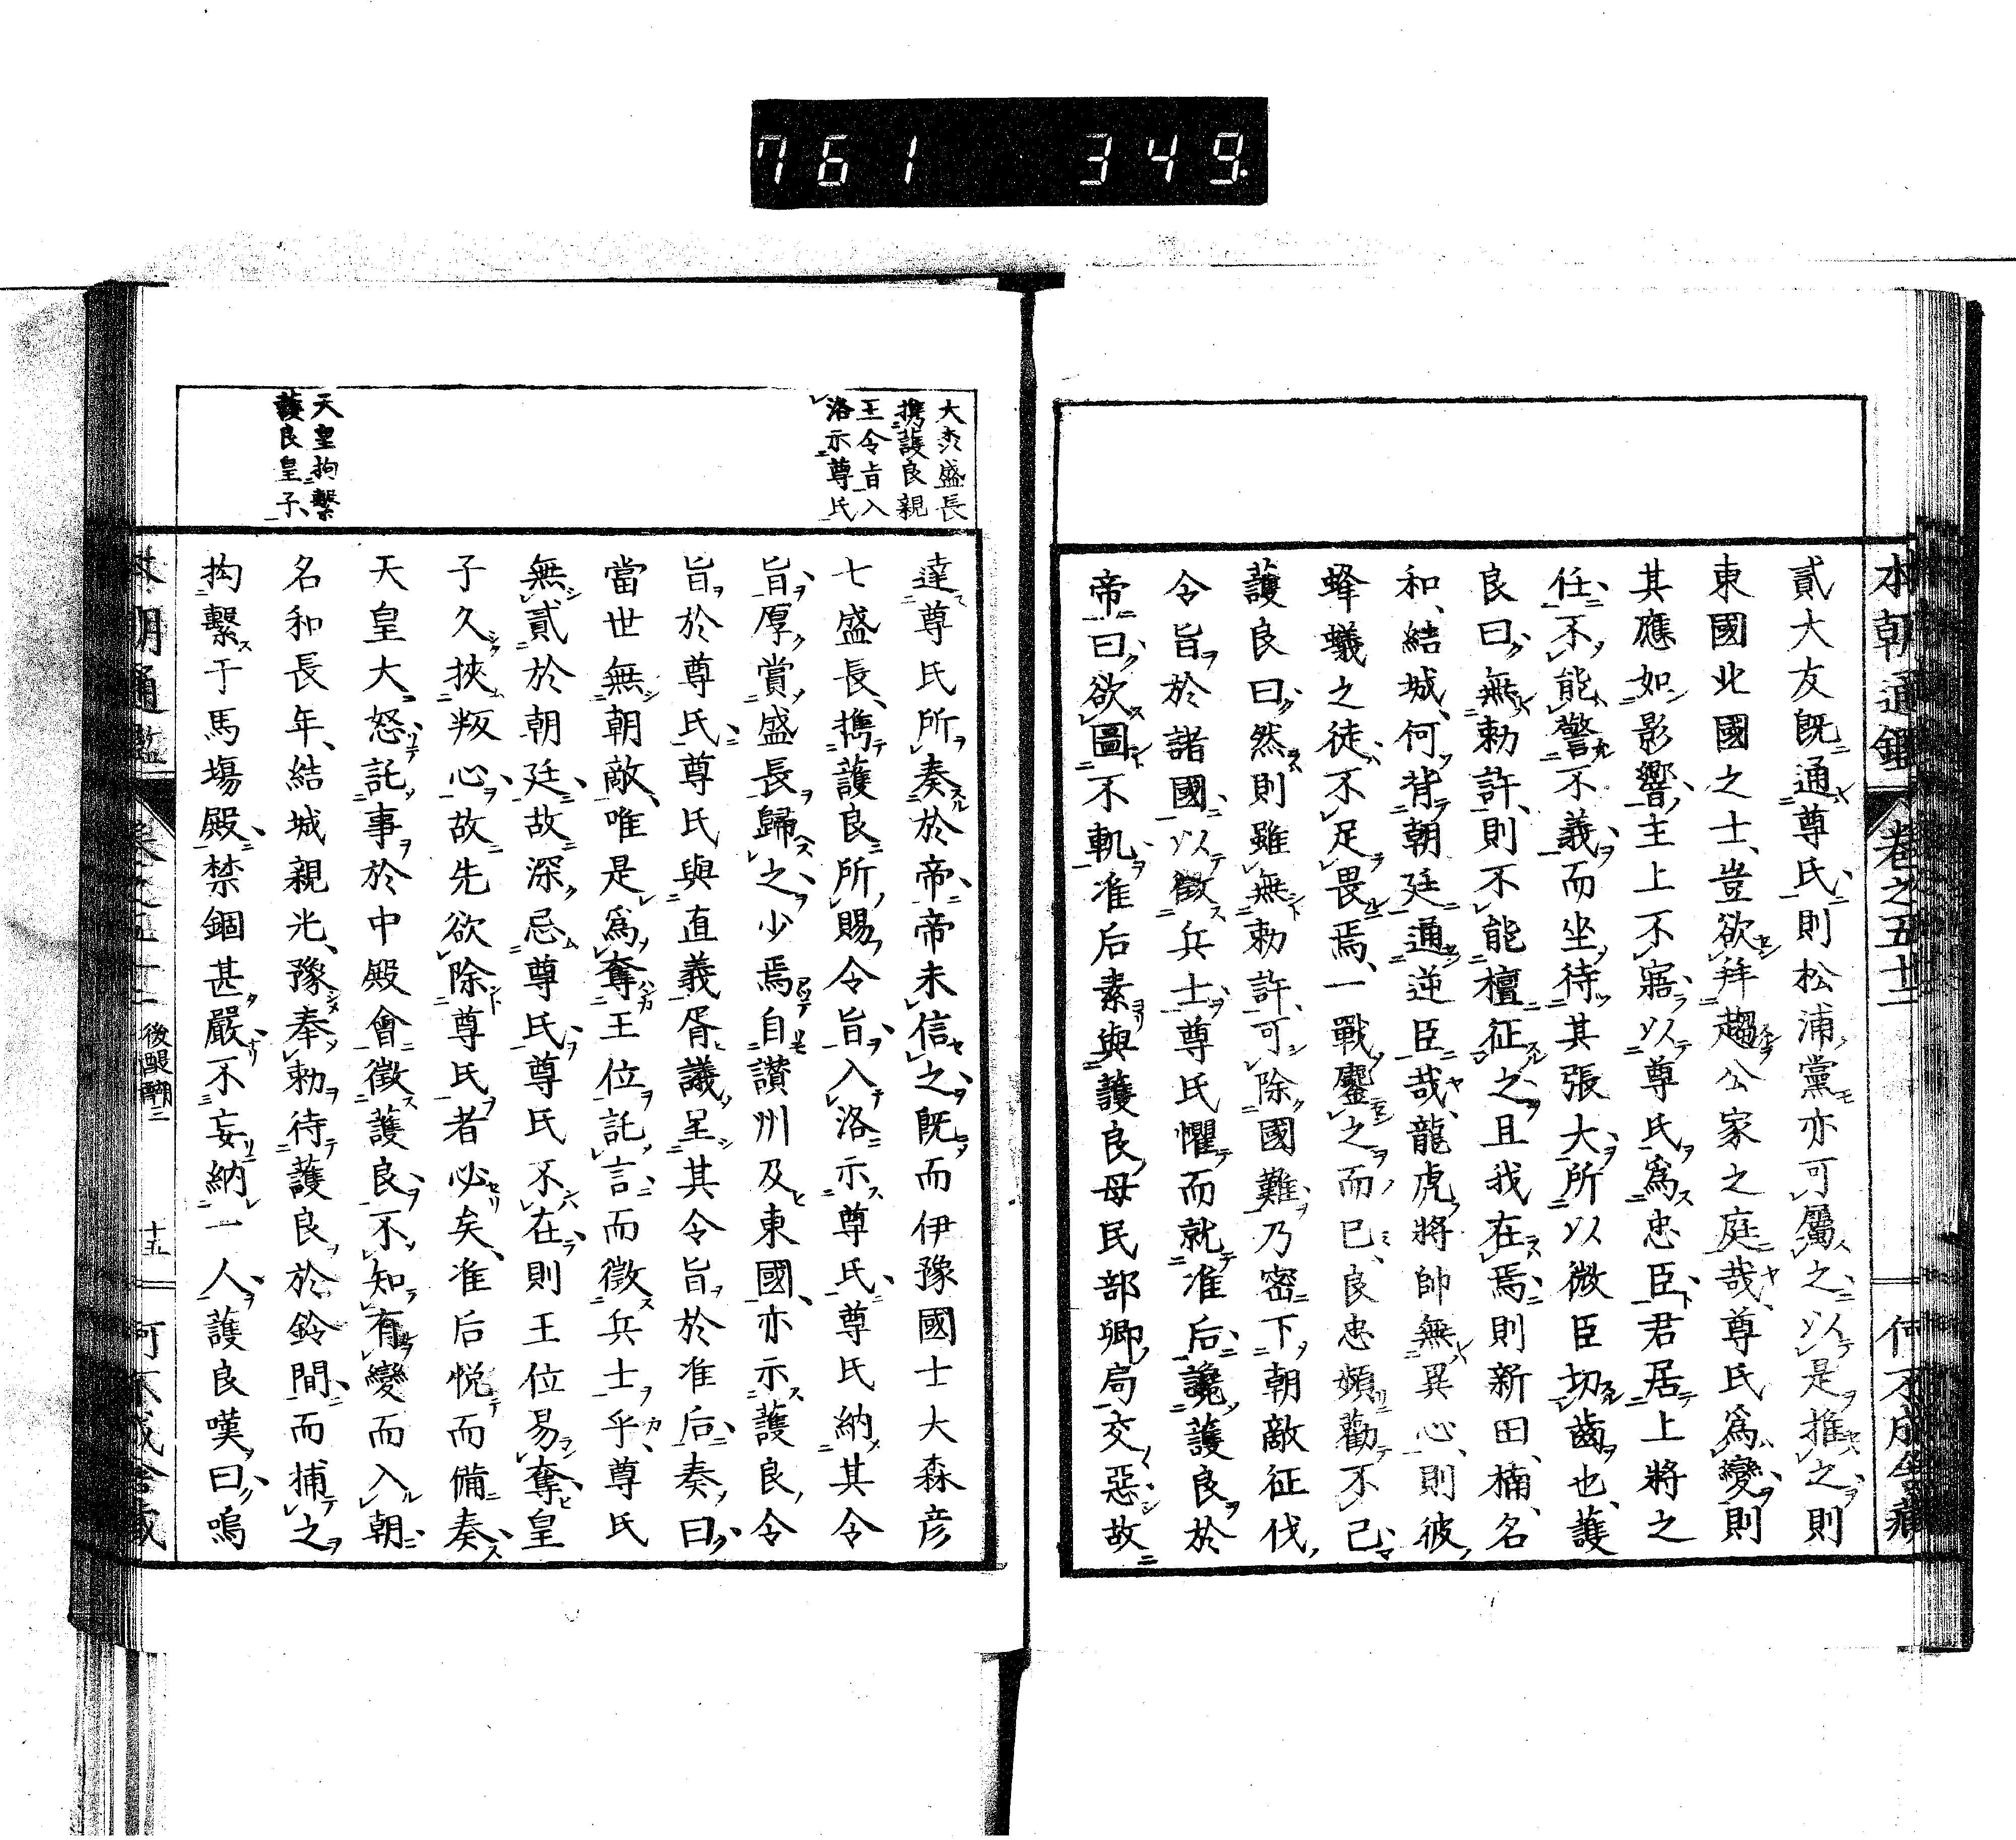 761 349.
本朝通鑑 卷之五十二 何不成舍藏
貳大友既通尊氏則松浦黨亦可屬之以是推之則
東國北國之士豈欲拜趨公家之庭哉尊氏爲變則
其應如影響主上不寤以尊氏爲忠臣君居上將之
任不能警不義而坐待其張大所以微臣切齒也護
良曰無勅許則不能檀征之且我在焉則新田楠名
和結城何背朝廷通逆臣哉龍虎將帥無異心則彼
蜂蟻之徒不足畏焉一戰鏖之而已良忠頻勸不已
護良曰然則雖無勅許可除國難乃密下朝敵征伐
令旨於諸國以徵兵士尊氏懼而就准后讒護良於
帝曰欲圖不軌准后素與護良母民部卿局交惡故
大森盛長
携護良親
王令旨入
洛示尊氏
達尊氏所奏於帝帝未信之既而伊豫國士大森彦
七盛長携護良所賜令旨入洛示尊氏尊氏納其令
旨厚賞盛長歸之少焉自讃州及東國亦示護良令
旨於尊氏尊氏與直義胥議呈其令旨於准后奏曰
當世無朝敵唯是爲奪王位託言而徵兵士乎尊氏
無貳於朝廷故深忌尊氏尊氏不在則王位易奪皇
子久挾叛心故先欲除尊氏者必矣准后悦而備奏
天皇大怒託事於中殿會徵護良不知有變而入朝
名和長年結城親光豫奉勅待護良於鈴間而捕之
拘繫于馬場殿禁錮甚嚴不妄納一人護良嘆曰嗚
天皇拘繫
護良皇子
本朝通鑑 卷之五十二 後醍醐二 十五 何不成舍藏